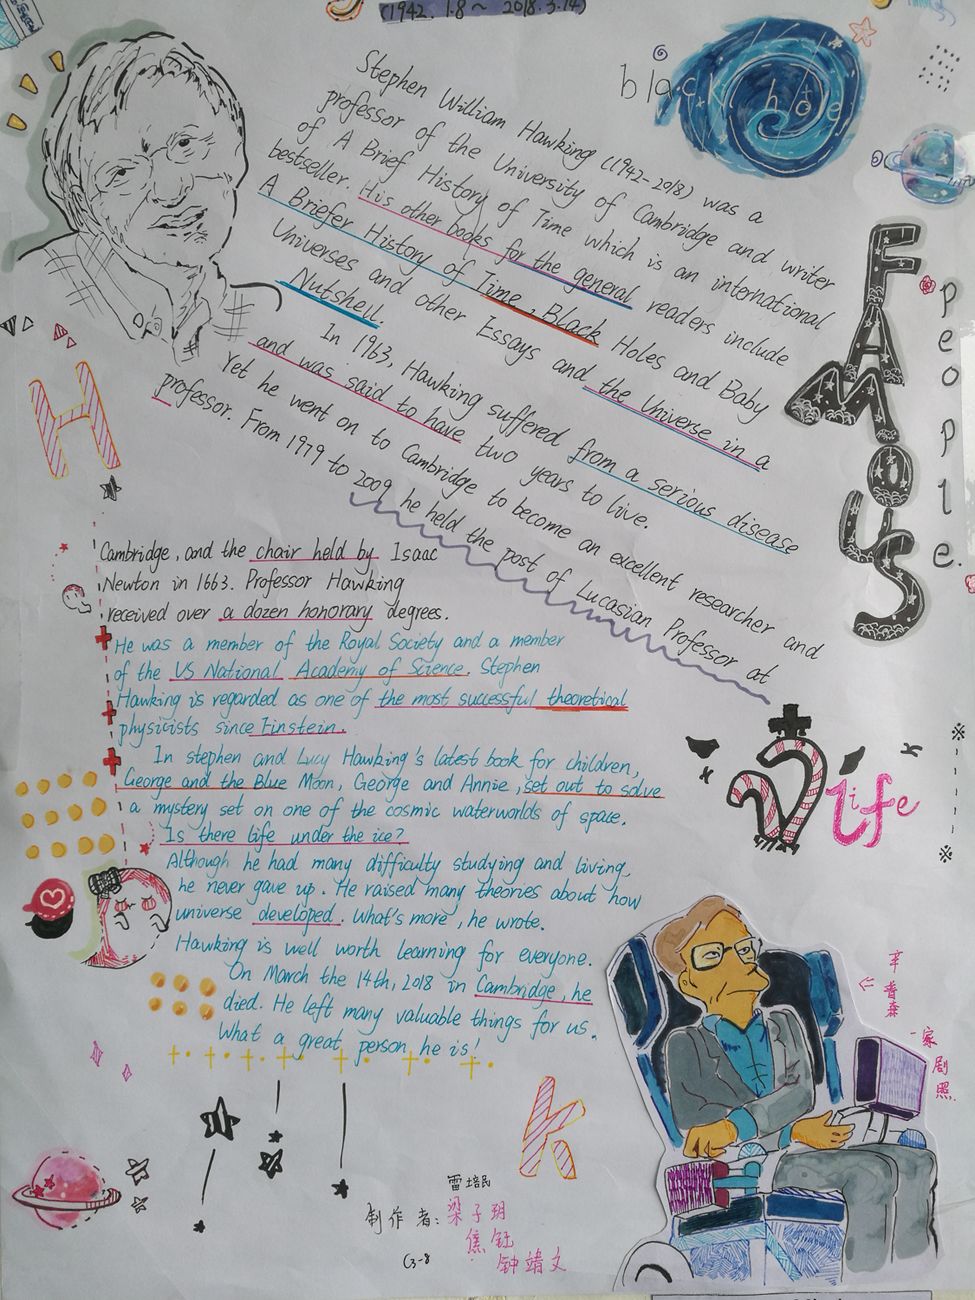 (1942. 1.8~ 2018.3.14)
black hole
FAMOUS
people.
Stephen William Hawking (1942-2018) was a
professor of the University of Cambridge and writer
of A Brief History of Time which is an international
bestseller. His other books for the general readers include
A Briefer History of Time, Black Holes and Baby
Universes and other Essays and the Universe in a
Nutshell.
In 1963, Hawking suffered from a serious disease
and was said to have two years to live.
Yet he went on to Cambridge to become an excellent researcher and
professor. From 1979 to 2009 he held the post of Lucasian Professor at
H
Cambridge, and the chair held by Isaac
Newton in 1663. Professor Hawking
received over a dozen honorary degrees.
He was a member of the Royal Society and a member
of the US National Academy of Science. Stephen
Hawking is regarded as one of the most successful theoretical
physicists since Einstein.
In stephen and Lucy Hawking's latest book for children,
George and the Blue Moon, George and Annie, set out to solve
a mystery set on one of the cosmic waterworlds of space.
Is there life under the ice?
Although he had many difficulty studying and living,
he never gave up. He raised many theories about how
universe developed. What's more, he wrote.
Hawking is well worth learning for everyone.
On March the 14th, 2018 in Cambridge, he
died. He left many valuable things for us.
What a great person he is!
life
辛普森
一家
剧照
k
雷培民
制作者: 梁子玥
焦钰
钟靖文
C3-8